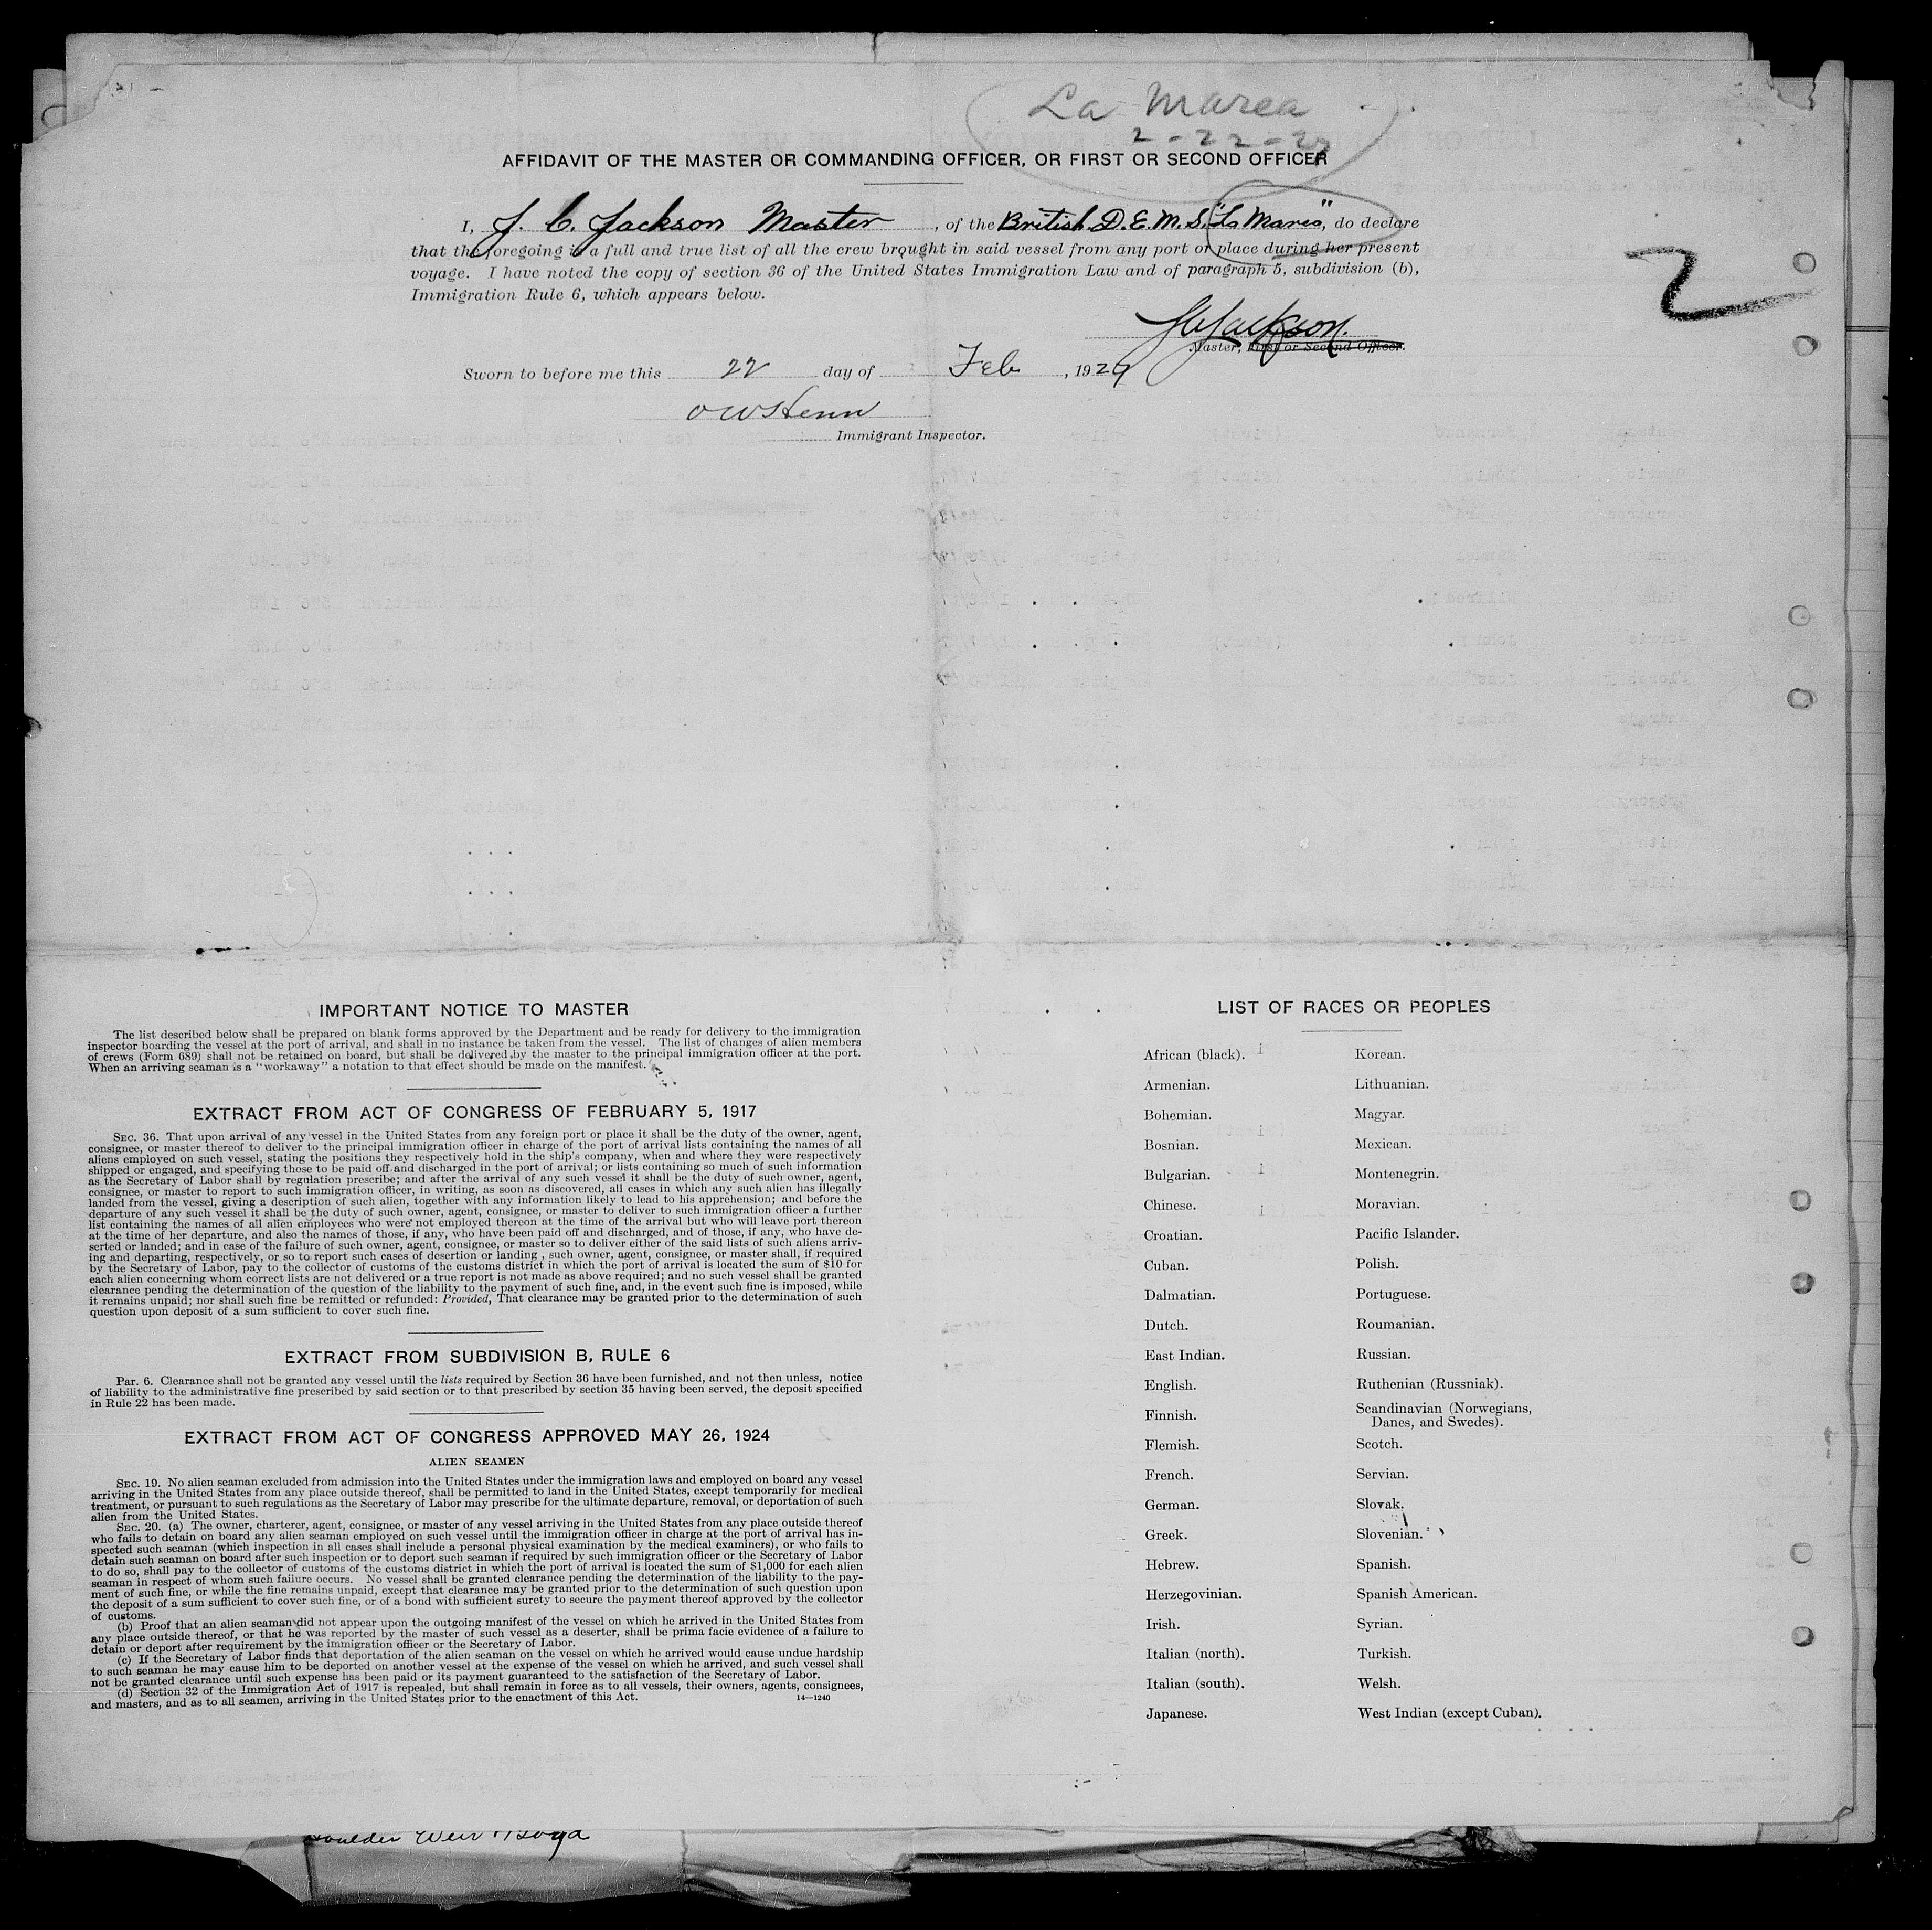 La Marea
2-22-27
AFFIDAVIT OF THE MASTER OR COMMANDING OFFICER, OR FIRST OR SECOND OFFICER
I, J. C. Jackson Master, of the British D.E.M.S. "La Marea", do declare
that the foregoing is a full and true list of all the crew brought in said vessel from any port or place during her present
voyage. I have noted the copy of section 36 of the United States Immigration Law and of paragraph 5, subdivision (b),
Immigration Rule 6, which appears below.
2
J C Jackson.
Master, First or Second Officer.
Sworn to before me this 22 day of Feb, 1927
Immigrant Inspector.
IMPORTANT NOTICE TO MASTER
The list described below shall be prepared on blank forms approved by the Department and be ready for delivery to the immigration
inspector boarding the vessel at the port of arrival, and shall in no instance be taken from the vessel. The list of changes of alien members
of crews (Form 689) shall not be retained on board, but shall be delivered by the master to the principal immigration officer at the port.
When an arriving seaman is a "workaway" a notation to that effect should be made on the manifest.
EXTRACT FROM ACT OF CONGRESS OF FEBRUARY 5, 1917
SEC. 36. That upon arrival of any vessel in the United States from any foreign port or place it shall be the duty of the owner, agent,
consignee, or master thereof to deliver to the principal immigration officer in charge of the port of arrival lists containing the names of all
aliens employed on such vessel, stating the positions they respectively hold in the ship's company, when and where they were respectively
shipped or engaged, and specifying those to be paid off and discharged in the port of arrival; or lists containing so much of such information
as the Secretary of Labor shall by regulation prescribe; and after the arrival of any such vessel it shall be the duty of such owner, agent,
consignee, or master to report to such immigration officer, in writing, as soon as discovered, all cases in which any such alien has illegally
landed from the vessel, giving a description of such alien, together with any information likely to lead to his apprehension; and before the
departure of any such vessel it shall be the duty of such owner, agent, consignee, or master to deliver to such immigration officer a further
list containing the names of all alien employees who were not employed thereon at the time of the arrival but who will leave port thereon
at the time of her departure, and also the names of those, if any, who have been paid off and discharged, and of those, if any, who have de-
serted or landed; and in case of the failure of such owner, agent, consignee, or master so to deliver either of the said lists of such aliens arriv-
ing and departing, respectively, or so to report such cases of desertion or landing , such owner, agent, consignee, or master shall, if required
by the Secretary of Labor, pay to the collector of customs of the customs district in which the port of arrival is located the sum of $10 for
each alien concerning whom correct lists are not delivered or a true report is not made as above required; and no such vessel shall be granted
clearance pending the determination of the question of the liability to the payment of such fine, and, in the event such fine is imposed, while
it remains unpaid; nor shall such fine be remitted or refunded: Provided, That clearance may be granted prior to the determination of such
question upon deposit of a sum sufficient to cover such fine.
EXTRACT FROM SUBDIVISION B, RULE 6
Par. 6. Clearance shall not be granted any vessel until the lists required by Section 36 have been furnished, and not then unless, notice
of liability to the administrative fine prescribed by said section or to that prescribed by section 35 having been served, the deposit specified
in Rule 22 has been made.
EXTRACT FROM ACT OF CONGRESS APPROVED MAY 26, 1924
ALIEN SEAMEN
SEC. 19. No alien seaman excluded from admission into the United States under the immigration laws and employed on board any vessel
arriving in the United States from any place outside thereof, shall be permitted to land in the United States, except temporarily for medical
treatment, or pursuant to such regulations as the Secretary of Labor may prescribe for the ultimate departure, removal, or deportation of such
alien from the United States.
SEC. 20. (a) The owner, charterer, agent, consignee, or master of any vessel arriving in the United States from any place outside thereof
who fails to detain on board any alien seaman employed on such vessel until the immigration officer in charge at the port of arrival has in-
spected such seaman (which inspection in all cases shall include a personal physical examination by the medical examiners), or who fails to
detain such seaman on board after such inspection or to deport such seaman if required by such immigration officer or the Secretary of Labor
to do so, shall pay to the collector of customs of the customs district in which the port of arrival is located the sum of $1,000 for each alien
seaman in respect of whom such failure occurs. No vessel shall be granted clearance pending the determination of the liability to the pay-
ment of such fine, or while the fine remains unpaid, except that clearance may be granted prior to the determination of such question upon
the deposit of a sum sufficient to cover such fine, or of a bond with sufficient surety to secure the payment thereof approved by the collector
of customs.
(b) Proof that an alien seaman did not appear upon the outgoing manifest of the vessel on which he arrived in the United States from
any place outside thereof, or that he was reported by the master of such vessel as a deserter, shall be prima facie evidence of a failure to
detain or deport after requirement by the immigration officer or the Secretary of Labor.
(c) If the Secretary of Labor finds that deportation of the alien seaman on the vessel on which he arrived would cause undue hardship
to such seaman he may cause him to be deported on another vessel at the expense of the vessel on which he arrived, and such vessel shall
not be granted clearance until such expense has been paid or its payment guaranteed to the satisfaction of the Secretary of Labor.
(d) Section 32 of the Immigration Act of 1917 is repealed, but shall remain in force as to all vessels, their owners, agents, consignees,
and masters, and as to all seamen, arriving in the United States prior to the enactment of this Act.
14—1240
LIST OF RACES OR PEOPLES
African (black).
Armenian.
Bohemian.
Bosnian.
Bulgarian.
Chinese.
Croatian.
Cuban.
Dalmatian.
Dutch.
East Indian.
English.
Finnish.
Flemish.
French.
German.
Greek.
Hebrew.
Herzegovinian.
Irish.
Italian (north).
Italian (south).
Japanese.
Korean.
Lithuanian.
Magyar.
Mexican.
Montenegrin.
Moravian.
Pacific Islander.
Polish.
Portuguese.
Roumanian.
Russian.
Ruthenian (Russniak).
Scandinavian (Norwegians,
Danes, and Swedes).
Scotch.
Servian.
Slovak.
Slovenian.
Spanish.
Spanish American.
Syrian.
Turkish.
Welsh.
West Indian (except Cuban).